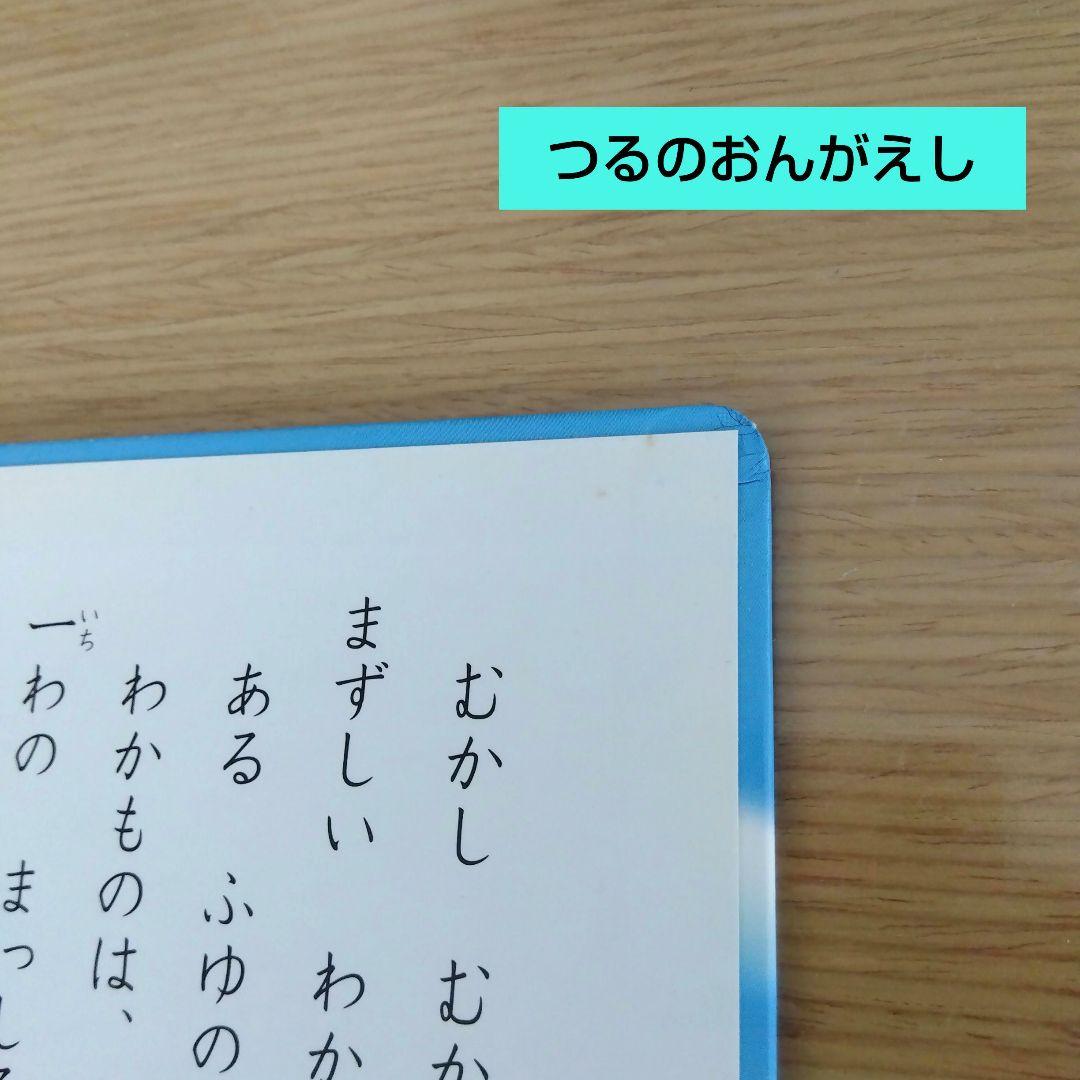 つるのおんがえし
むかし むか
まずしい わか
ある ふゆの
わかものは、
一わの まっし
いち